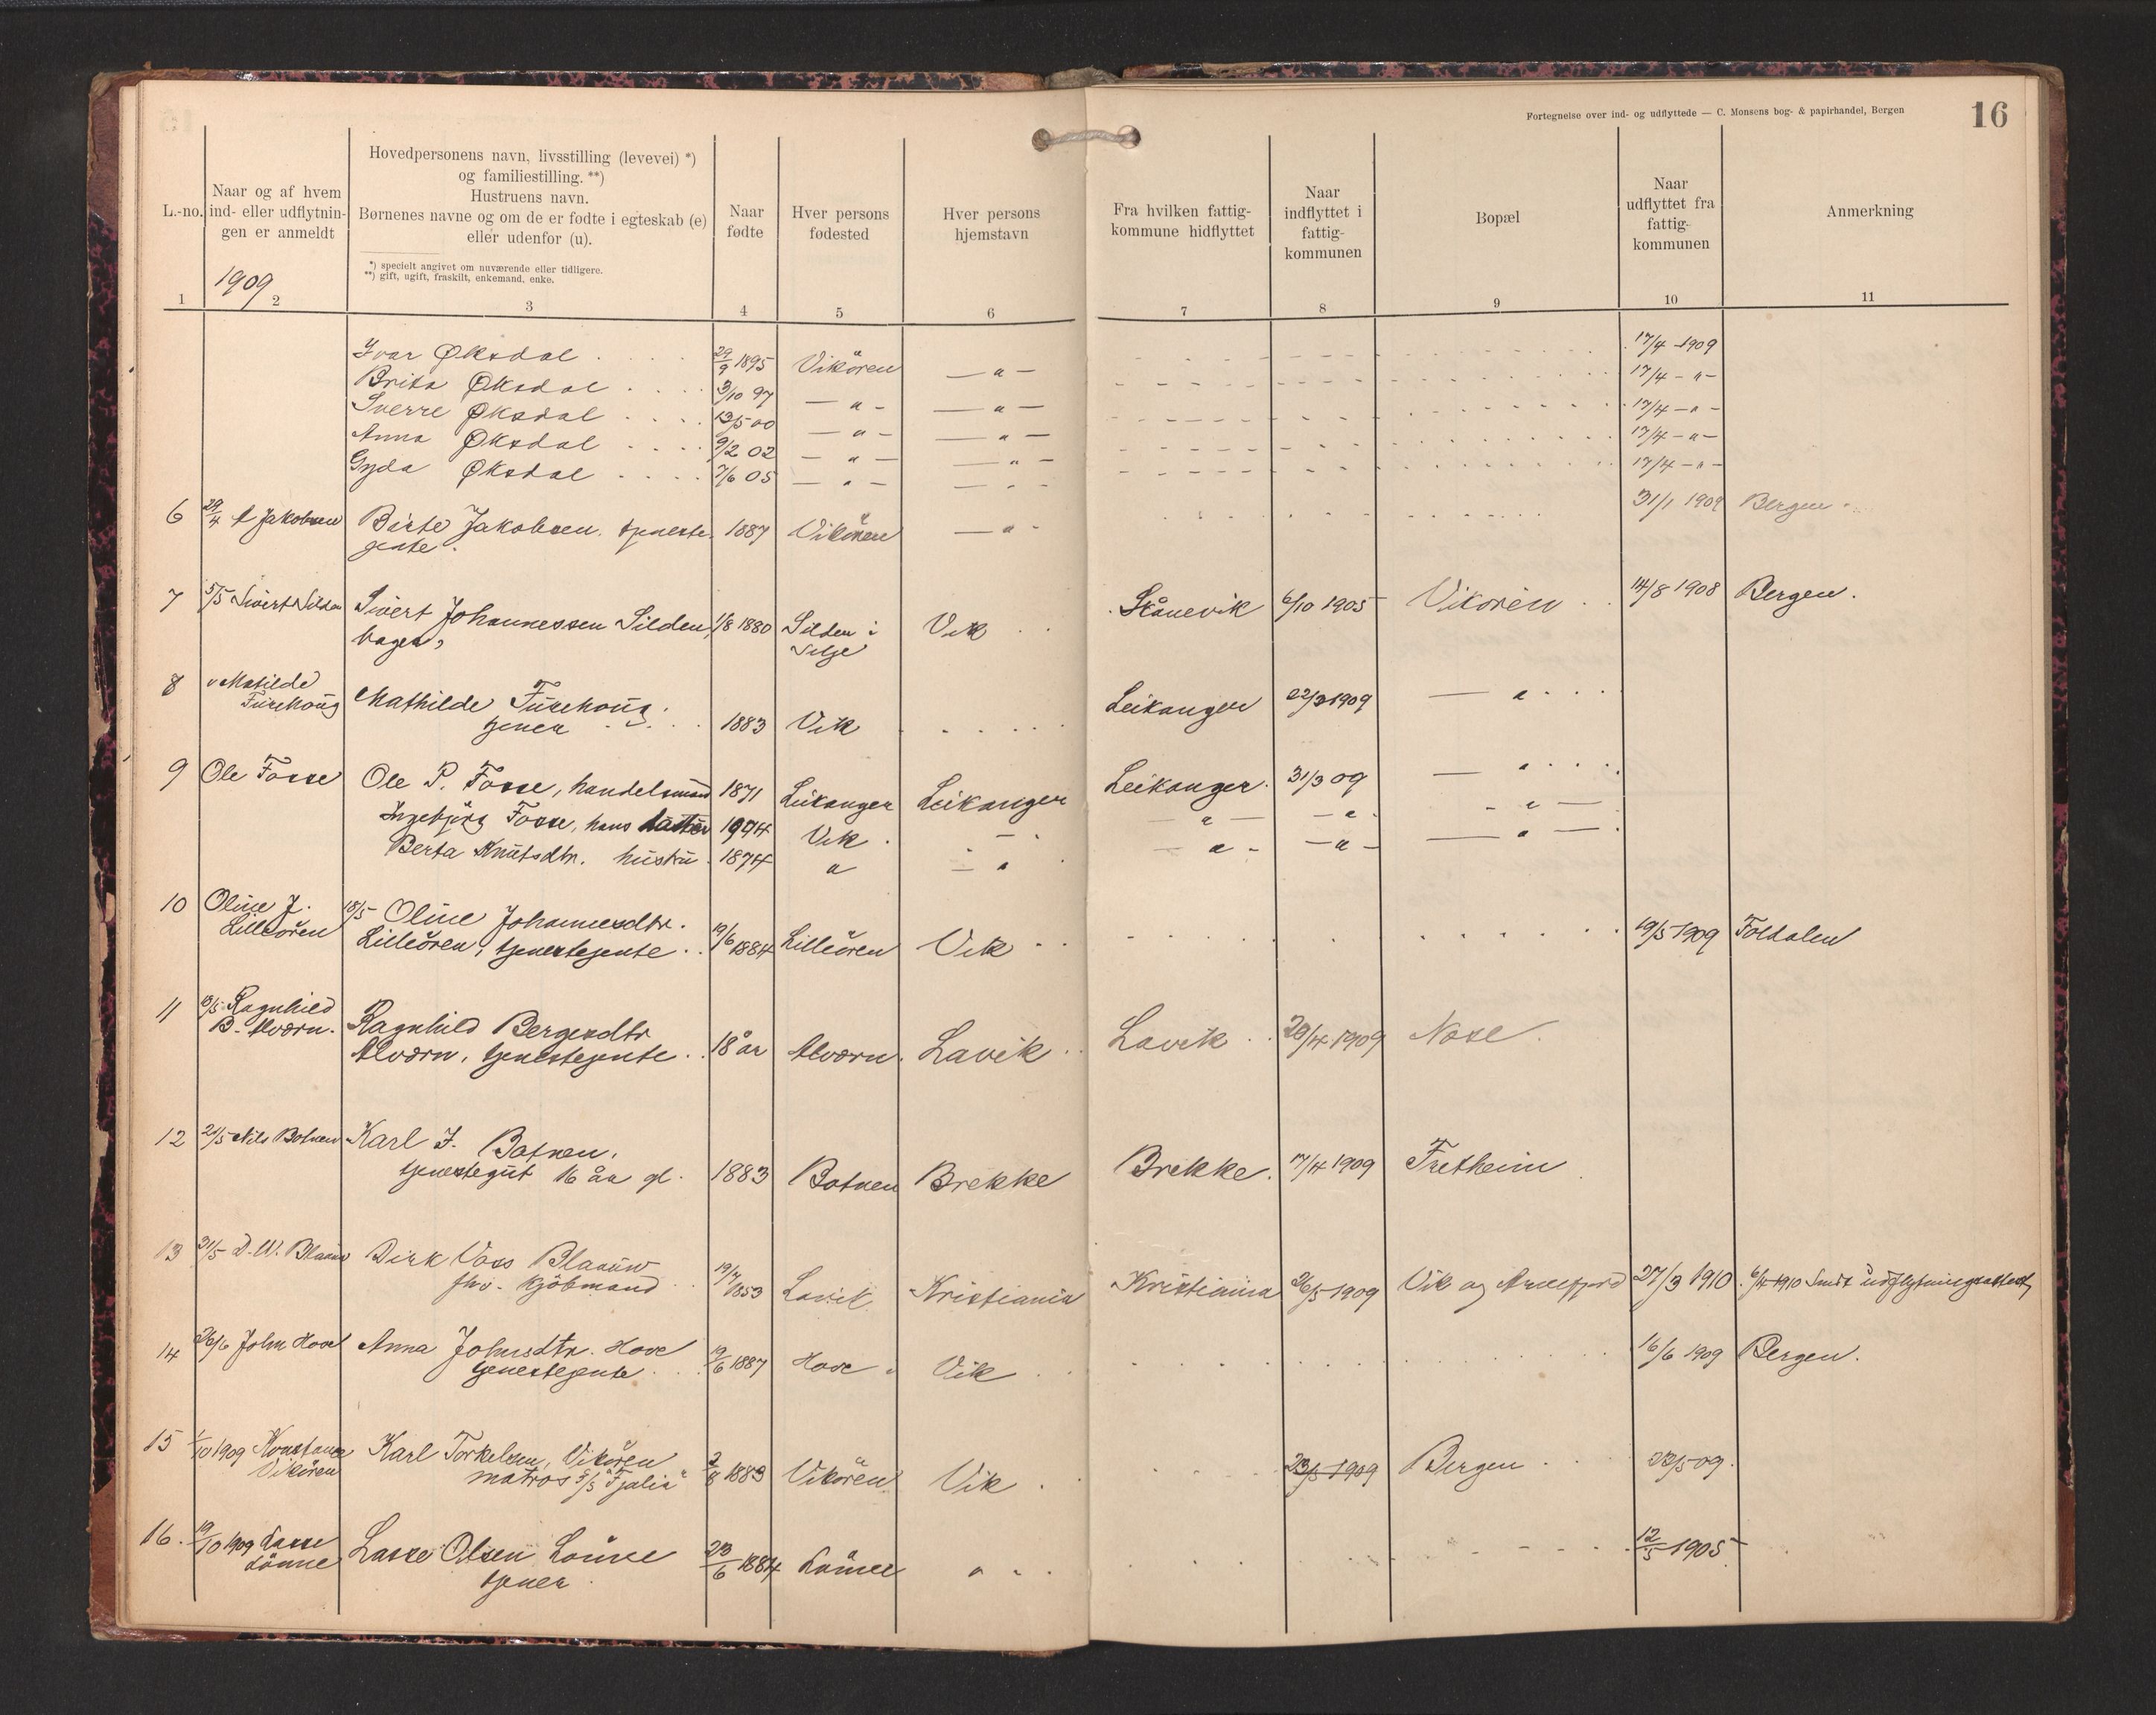 Fortegnelse over ind- og udflyttede — C. Monsens bog- & papirhandel, Bergen
16
L.-no.
Naar og af hvem
ind- eller udflytnin-
gen er anmeldt
1909
Hovedpersonens navn, livsstilling (levevei) *)
og familiestilling. **)
Hustruens navn.
Børnenes navne og om de er fødte i egteskab (e)
eller udenfor (u).
*) specielt angivet om nuværende eller tidligere.
**) gift, ugift, fraskilt, enkemand, enke.
Naar
fødte
Hver persons
fødested
Hver persons
hjemstavn
Fra hvilken fattig-
kommune hidflyttet
Naar
indflyttet i
fattig-
kommunen
Bopæl
Naar
udflyttet fra
fattig-
kommunen
Anmerkning
1 2 3 4 5 6 7 8 9 10 11
Ivar Øksdal 29/9 1895 Vikören — " — 17/4 1909
Brita Øksdal 3/10 97 — " — — " — 17/4 — " —
Sverre Øksdal 13/5 00 — " — — " — 17/4 — " —
Anna Øksdal 9/2 02 — " — — " — 17/4 — " —
Gyda Øksdal 7/6 05 — " — — " — 17/4 — " —
6 29/4 A Jakobsen Birte Jakobsen. tjeneste- 1887 Vikören — " — 31/1 1909 Bergen
gente.
7 5/5 Sivert Silden Sivert Johannessen Silden 1/8 1880 Silden i Vik Skånevik 6/10 1905 Vikören 14/8 1908 Bergen.
bager, Selje
8 " Matilde
Furehoug Mathilde Furehoug. Leikanger 22/3 1909 — " —
tjener 1883 Vik
9 Ole Fosse Ole P. Fosse, handelsmand 1871 Leikanger Leikanger Leikanger 31/3 09 — " —
Ingebjörg Fosse, hans datter 1904 Vik — " — — " — — " — — " —
Berta Knutsdtr. hustru 1874 " — " — — " — — " — — " —
10 Oline J. 18/5 Oline Johannesdtr.
Lilleören Lilleören, tjenestejente 19/6 1884 Lilleören Vik 19/5 1909 Fordalen
11 19/5 Ragnhild
B. Alværn. Ragnhild Bergesdtr
Alværn, tjenestejente 18 år Alværn Lavik Lavik 20/4 1909 Nese
12 21/5 Nils Botnen Karl J. Botnen,
tjenestegut 16 år gl. 1883 Botnen Brekke Brekke. 17/4 1909 Fretheim
13 31/5 D. W. Blaauw Dirk Voss Blaauw
fhv. kjöbmand 19/7 1853 Lavik Kristiania Kristiania 26/5 1909 Vik og Arnefjord 27/3 1910 6/4 1910 Sendt udflytningsattest
14 26/6 John Hove Anna Johnsdtr. Hove 19/6 1887 Hove Vik 16/6 1909 Bergen.
tjenestejente
15 1/10 1909 Konstanse
Vikören Karl Torkelsen, Vikören
matros S/S "Fjalir" 3/8 1883 Vikören Vik 23/5 1909 Bergen 23/5 09.
16. 19/10 1909 Lasse
Lönne Lasse Olsen Lönne 23/6 1884 Lönne " 12/5 1905
tjener